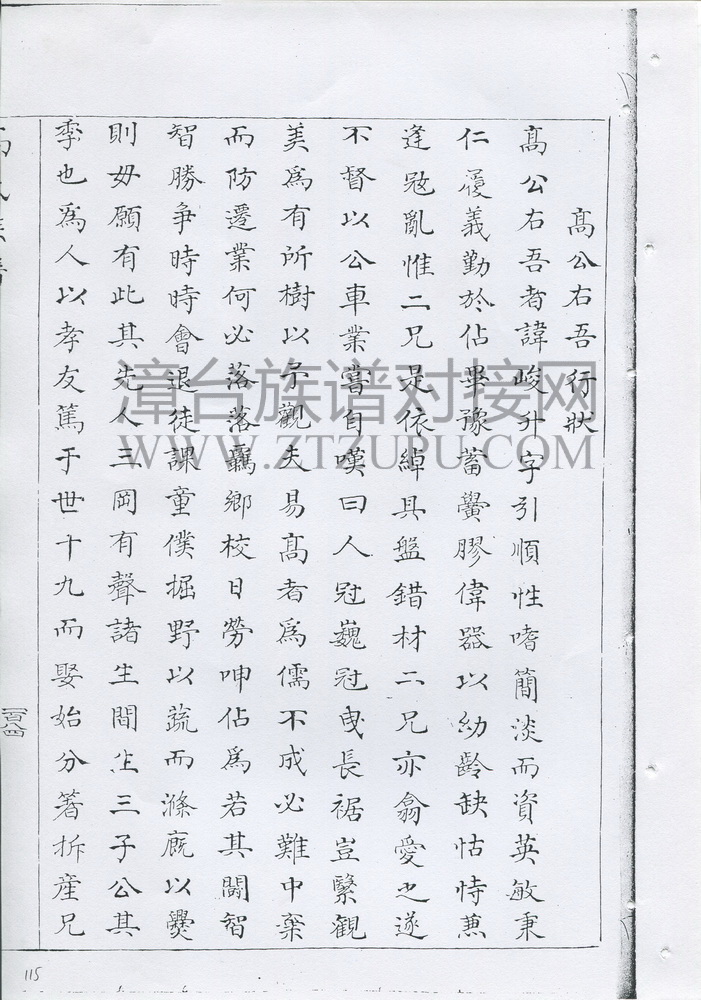 高公右吾行狀
高公右吾者諱峻升字引順性嗜簡淡而資英敏秉
仁履義勤於佔畢豫蓄黌膠偉器以幼齡缺怙恃蒹
逢寇亂惟二兄是依綽具盤錯材二兄亦翕愛之遂
不督以公車業嘗自嘆曰人冠巍冠曳長裾豈緊觀
美爲有所樹以予觀夫易高者爲儒不成必難中棄
而防遷業何必落落羈鄉校日勞呻佔爲若其鬪智
智勝爭時時會退徒課童僕掘野以蔬而滌厩以爨
則毋願有此其先人三岡有聲諸生間生三子公其
季也爲人以孝友篤于世十九而娶始分箸拆產兄
一百八四
115
漳台族谱对接网
WWW.ZTZUPU.COM